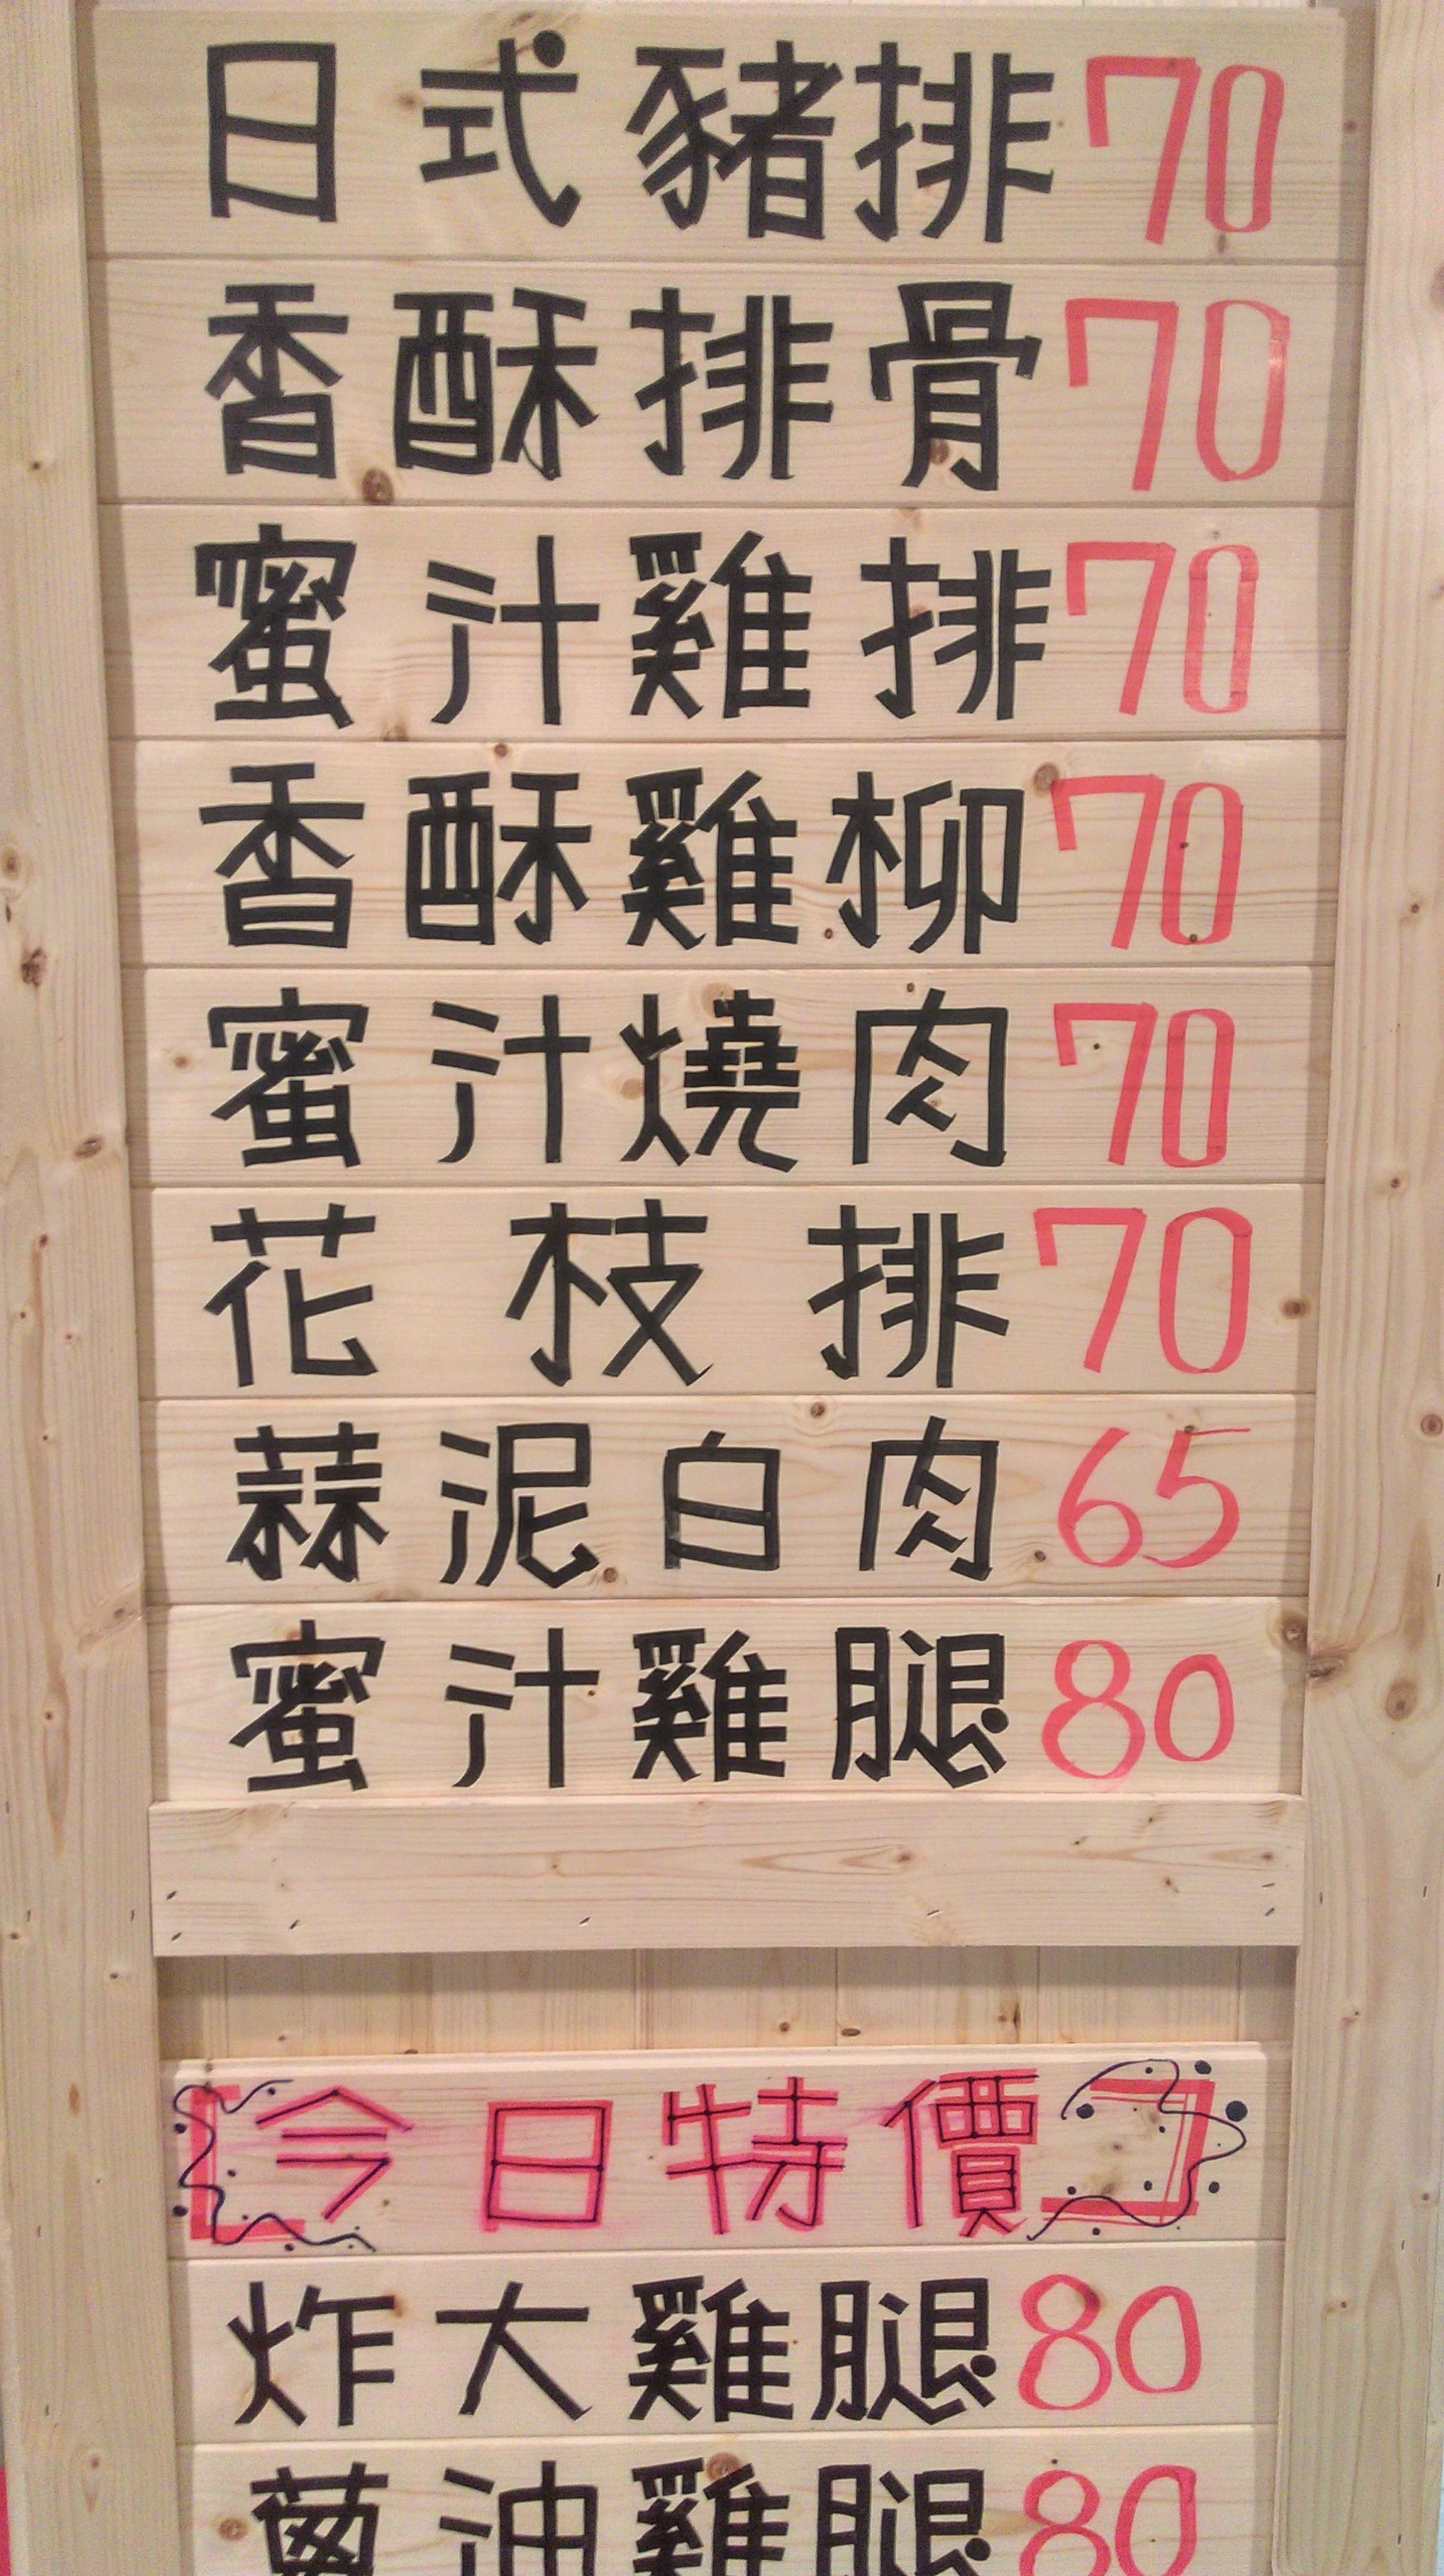 日式豬排70
香酥排骨70
蜜汁雞排70
香酥雞柳70
蜜汁燒肉70
花枝排70
蒜泥白肉65
蜜汁雞腿80
今日特價
炸大雞腿80
蔥油雞腿80